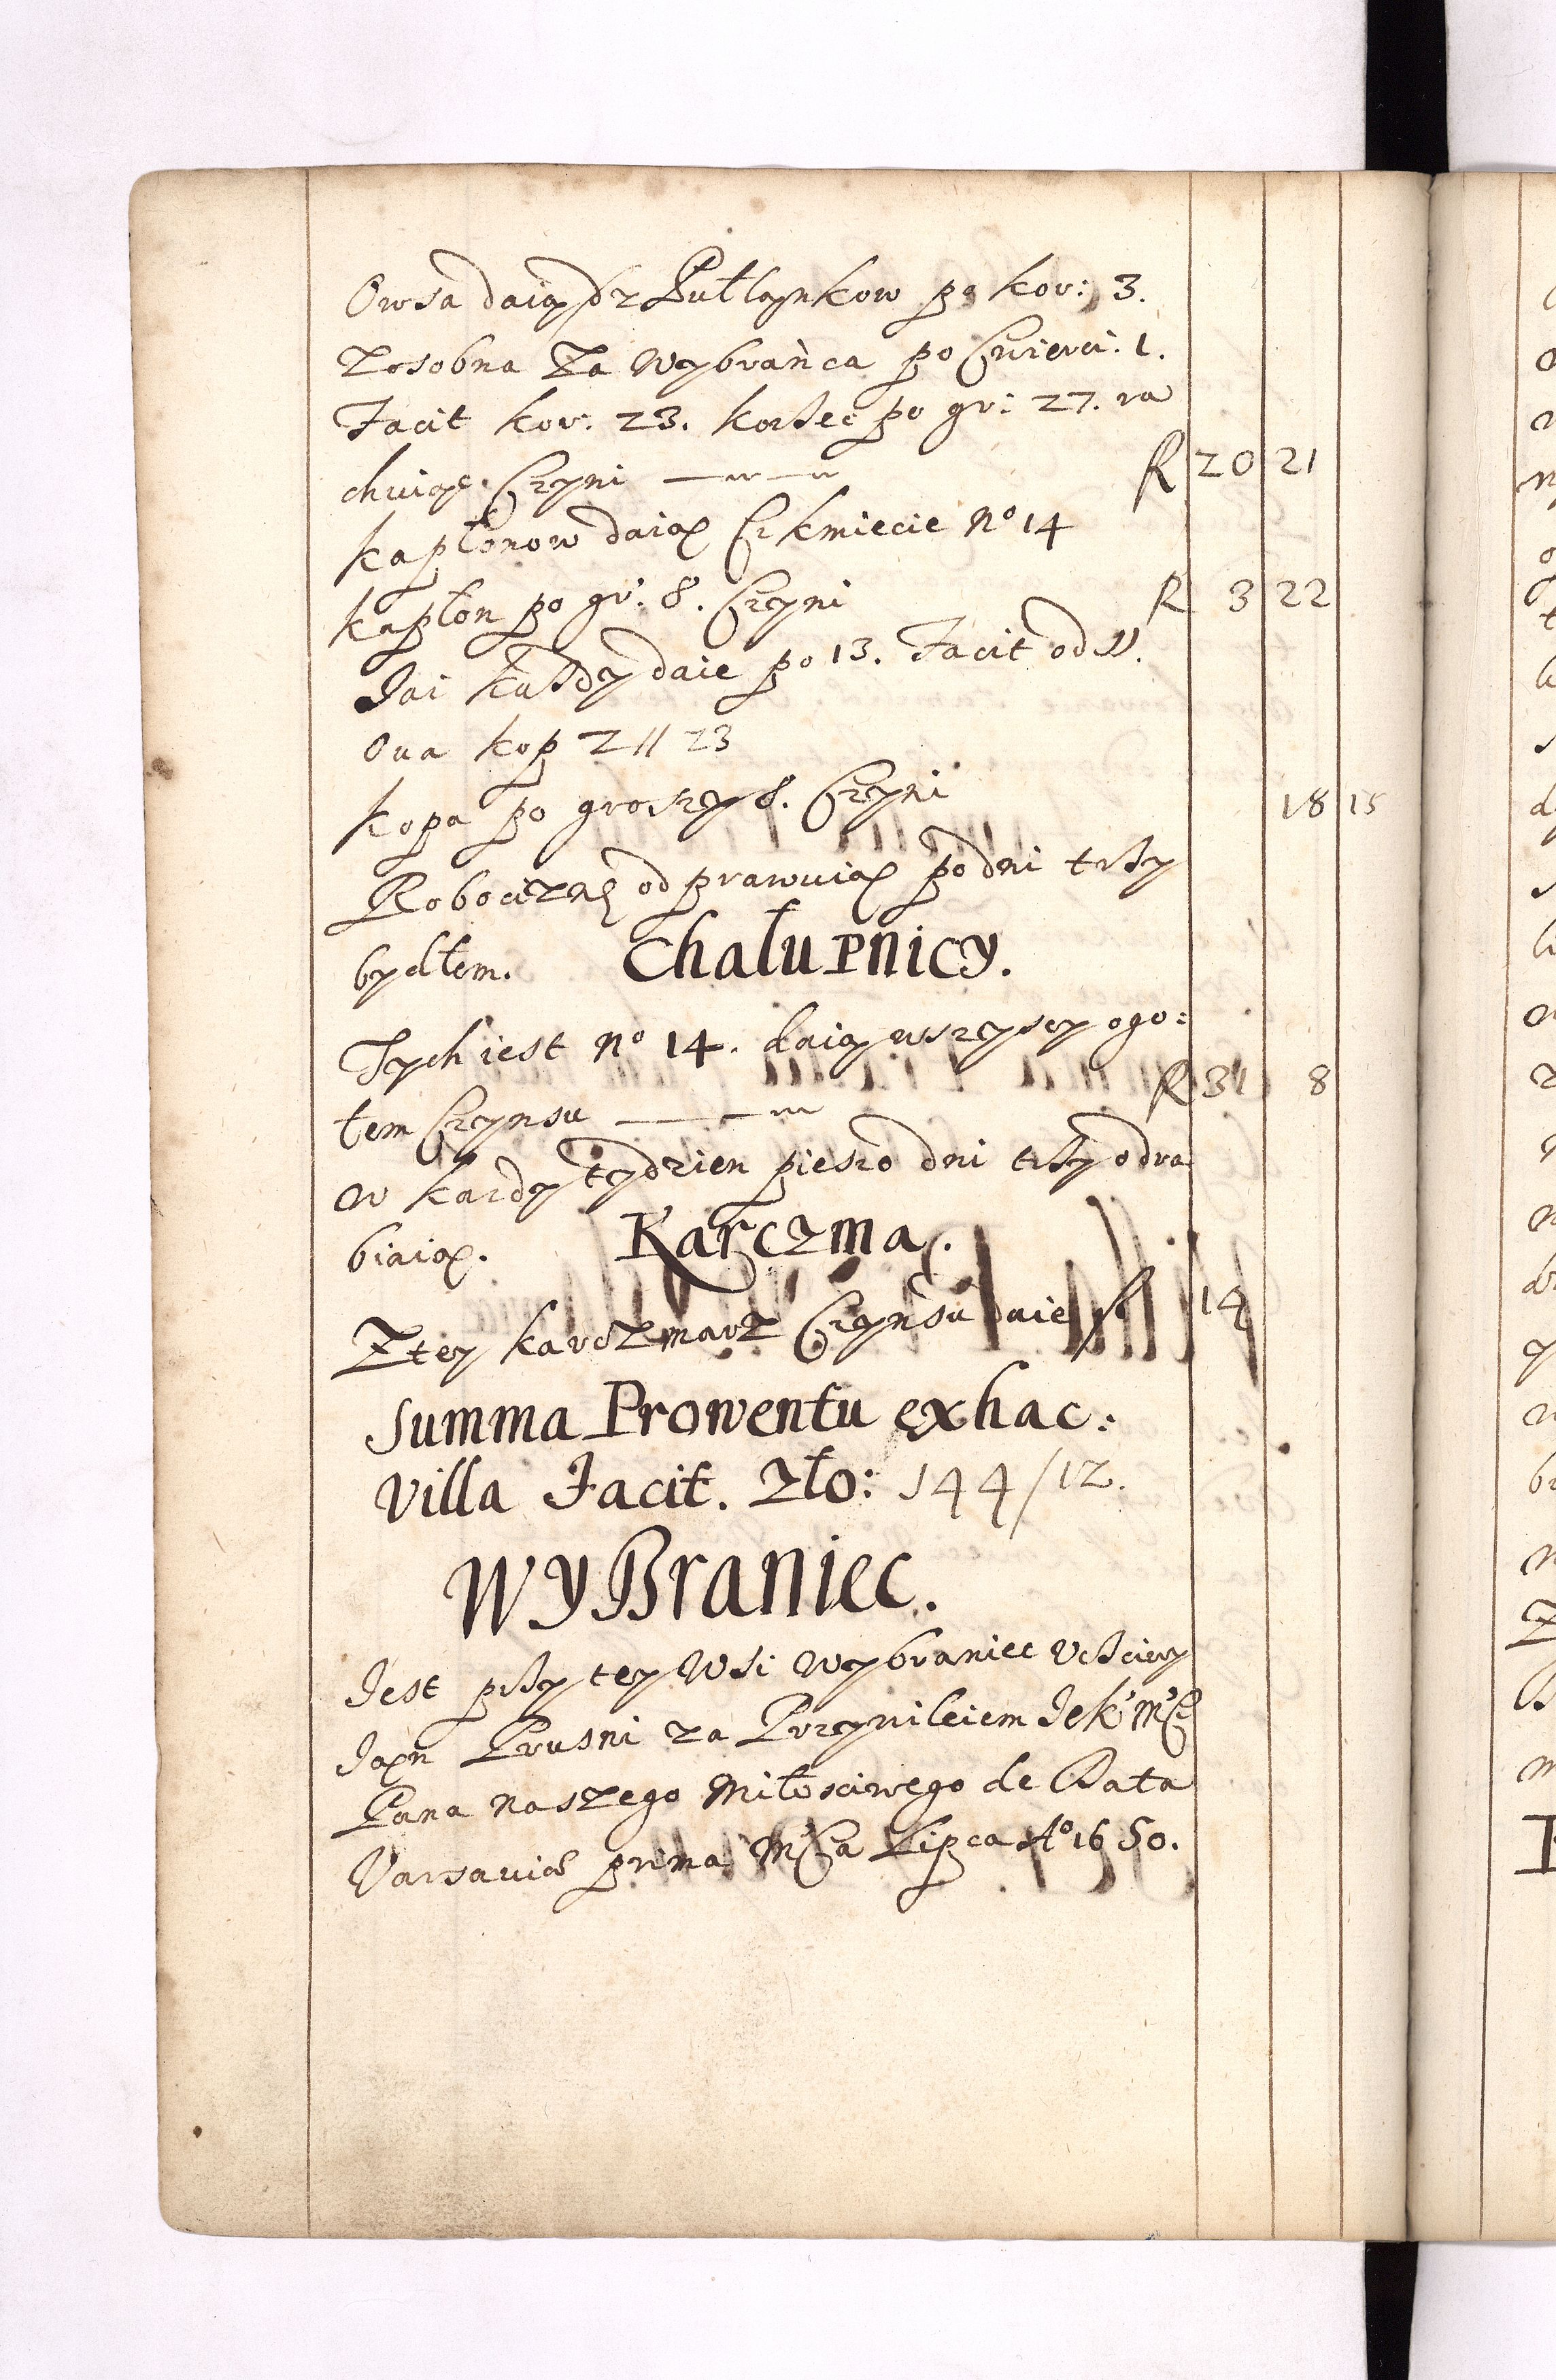 Owsa daią z Pułłaynkow po kor: 3.
Zosobna Za wybrańca po Cwierci. 1.
Facit kor: 23. korzec po gr: 27. ra
chuiąc. Czyni R 20 21
kapłonow daią Ci kmiecie No 14
kapłon po gr: 8. Czyni R 3 22
Jai każdy daie po 13. Facit od 11.
Oua kop 2 // 23
kopa po groszy 8. Czyni 18 15
Robociznę odprawuią po dni trzy
bydłem. Chałupnicy.
Tych iest No 14. daią wszyscy ogo:
łem Czynsu R 31 8
w kazdy tydzien pieszo dni trzy odra
biaią. Karczma.
Z tey karczmarz Czynsu daie f 14
Summa Prowentu ex hac:
villa Facit. zło: 144/12.
Wybraniec.
Jest przy tey Wsi wybraniec Vczciwy
Jan Prusni za Przywileiem JeK Mci
Pana naszego Miłosciwego de Data
Varsauiæ prima Mca Lipca Ao 1650.